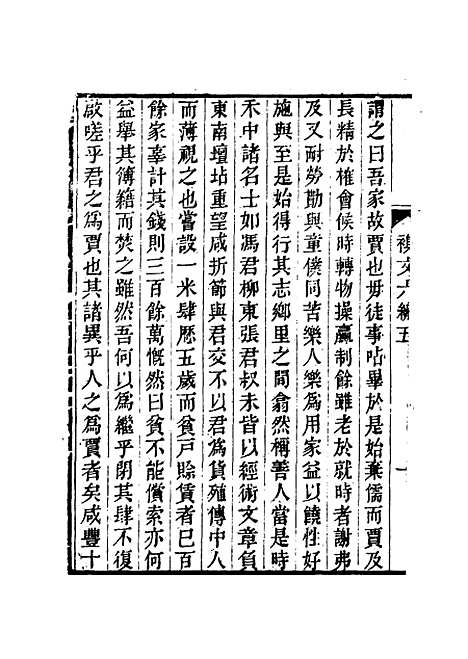 襍文六編五
謂之曰吾家故賈也毋徒事呫畢於是始棄儒而賈及
長精於榷會候時轉物操贏制餘雖老於就時者謝弗
及又耐勞勩與童僕同苦樂人樂爲用家益以饒性好
施與至是始得行其志鄉里之間翕然稱善人當是時
禾中諸名士如馮君柳東張君叔未皆以經術文章負
東南壇坫重望咸折節與君交不以君爲貨殖傳中人
而薄視之也嘗設一米肆歷五歲而貧戶賒貸者已百
餘家辜計其錢則三百餘萬慨然曰貧不能償索亦何
益舉其簿籍而焚之雖然吾何以爲繼乎閉其肆不復
啟嗟乎君之爲賈也其諸異乎人之爲賈者矣咸豐十